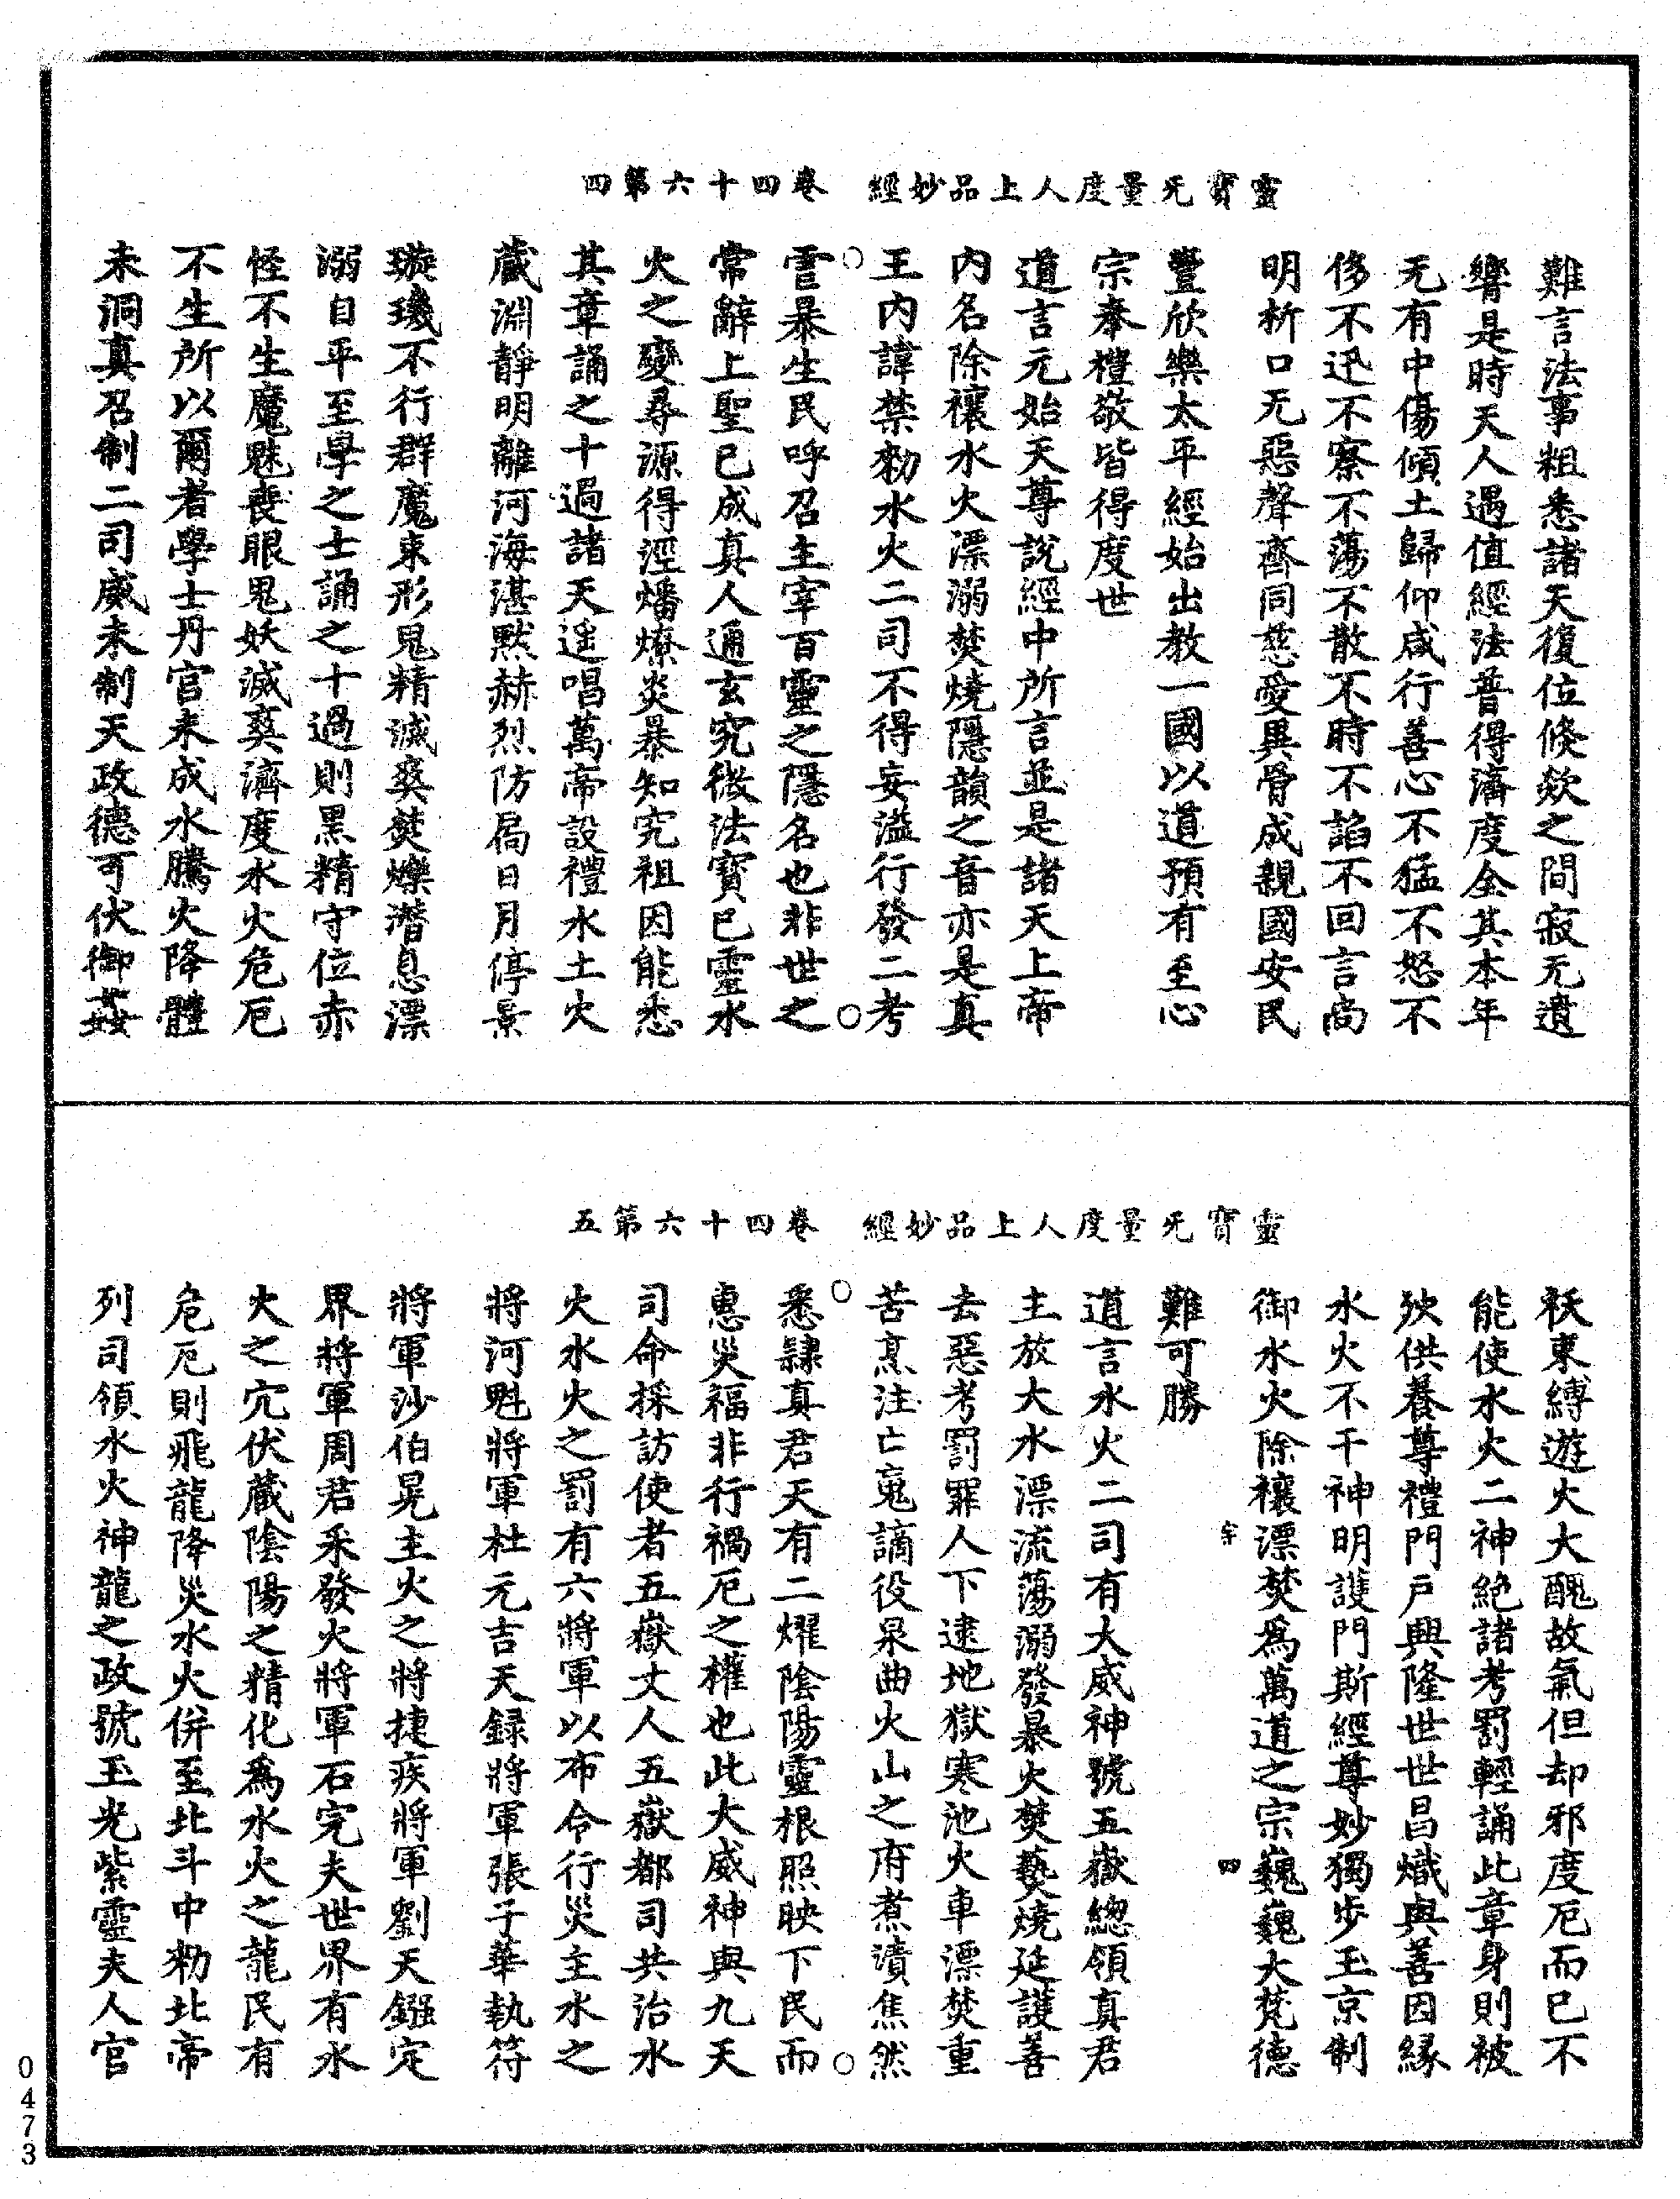 靈寶无量度人上品妙經　卷四十六第四
難言法事粗悉諸天復位倏欻之間寂无遺
響是時天人遇值經法普得濟度全其本年
无有中傷傾土歸仰咸行善心不猛不怒不
侈不迅不察不蕩不散不時不諂不回言尚
明析口无惡聲齊同慈愛異骨成親國安民
豐欣樂太平經始出教一國以道預有至心
宗奉禮敬皆得度世
道言元始天尊說經中所言並是諸天上帝
內名除禳水火漂溺焚燒隱韻之音亦是真
王內諱禁勑水火二司不得妄溢行發二考
雹暴生民呼召主宰百靈之隱名也非世之
常辭上聖已成真人通玄究微法寶已靈水
火之變尋源得淫燔燎炎暴知究祖因能悉
其章誦之十過諸天遥唱萬帝設禮水土火
藏淵靜明離河海湛默赫烈防局日月停景
璇璣不行群魔束形鬼精滅爽焚爍潛息漂
溺自平至學之士誦之十過則黑精守位赤
怪不生魔魅喪眼鬼妖滅爽濟度水火危厄
不生所以爾者學士丹官未成水騰火降體
未洞真召制二司威未制天政德可伏御姦
靈寶无量度人上品妙經　卷四十六第五
祅東縛遊火大醜故氣但却邪度厄而已不
能使水火二神絶諸考罰輕誦此章身則被
殃供養尊禮門戶興隆世世昌熾與善因緣
水火不干神明護門斯經尊妙獨步玉京制
御水火除禳漂焚為萬道之宗巍巍大梵德
難可勝
道言水火二司有大威神號五嶽總領真君
主放大水漂流蕩溺發暴火焚爇燒延護善
去惡考罰罪人下逮地獄寒池火車漂焚重
苦烹注亡䰟謫役泉曲火山之府煮漬焦然
悉隸真君天有二燿陰陽靈根照映下民而
惠災福非行禍厄之權也此大威神與九天
司命採訪使者五嶽丈人五嶽都司共治水
火水火之罰有六將軍以布令行災主水之
將河魁將軍杜元吉天録將軍張子華執符
將軍沙伯晃主火之將捷疾將軍劉天鏹定
界將軍周君釆發火將軍石完夫世界有水
火之宂伏藏陰陽之精化為水火之龍民有
危厄則飛龍降災水火併至北斗中勑北帝
列司領水火神龍之政號玉光紫靈夫人官
字 四
0473